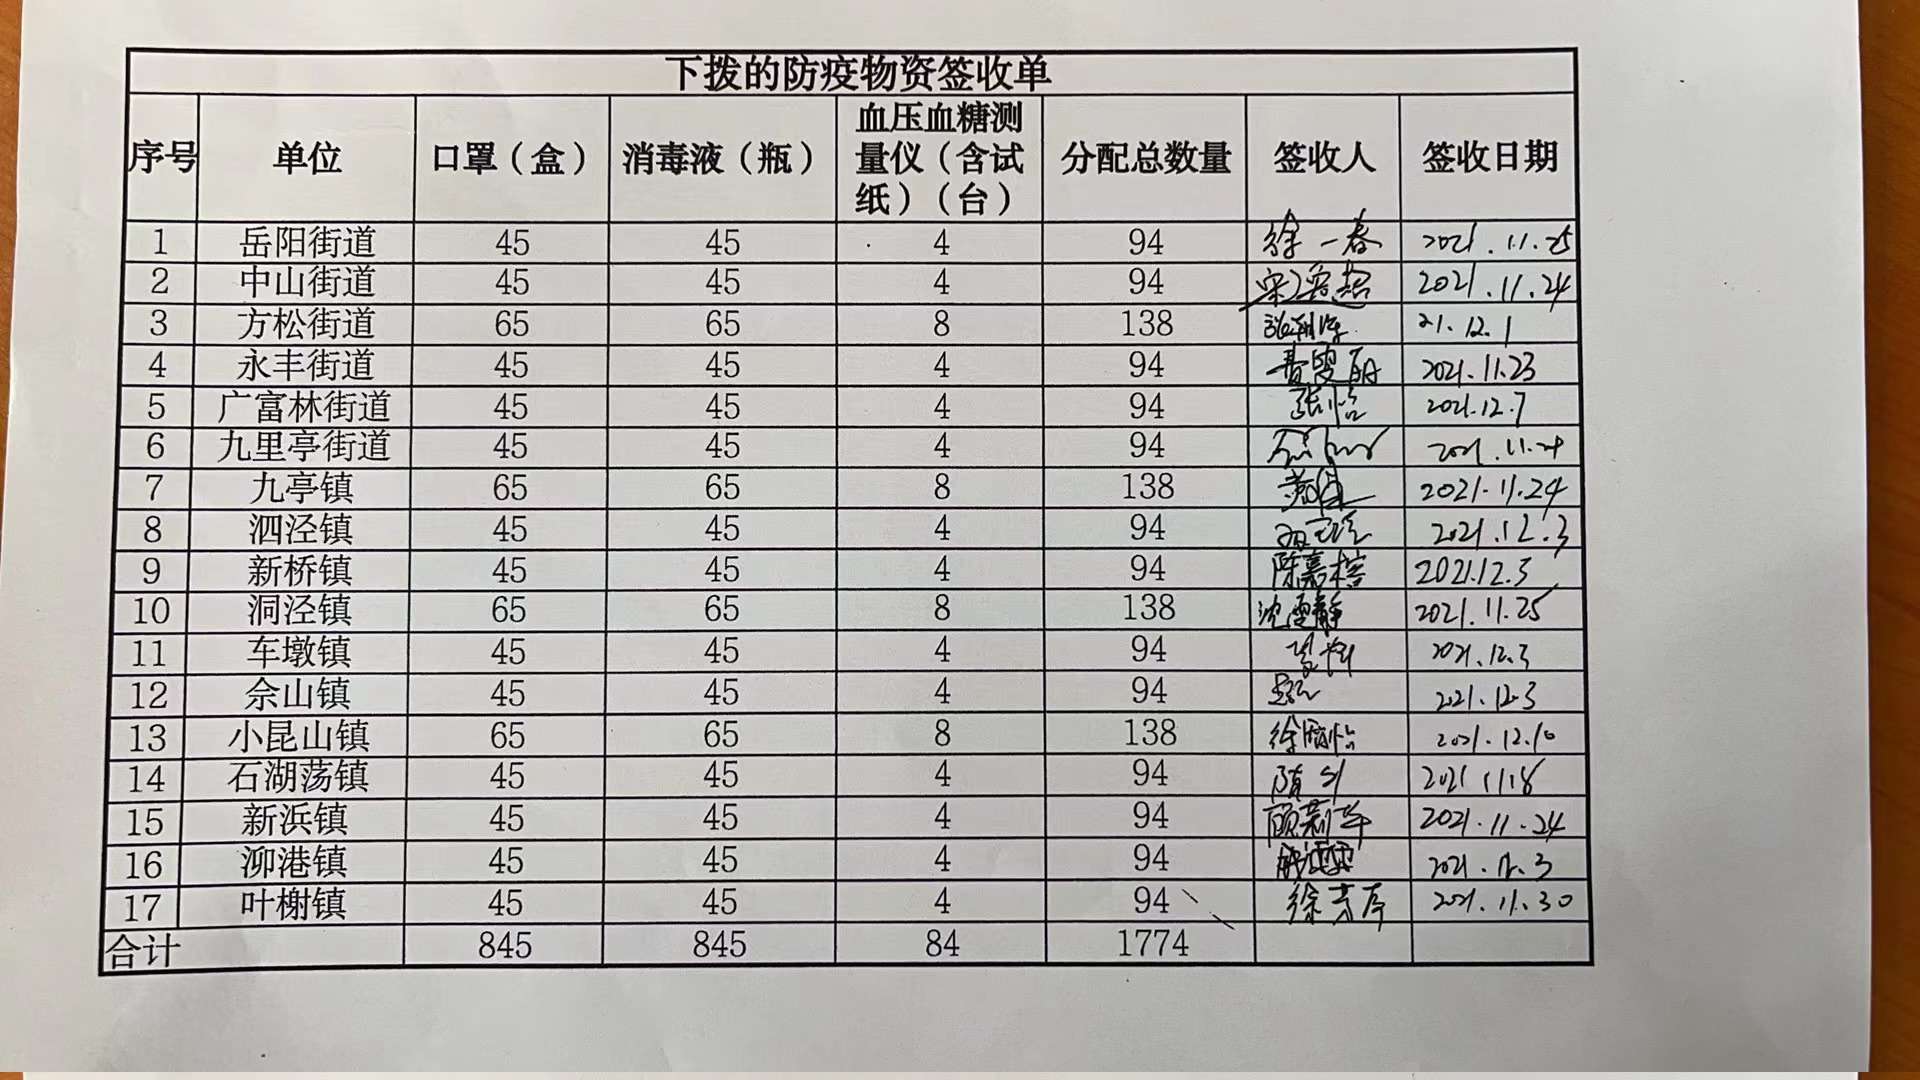 下拨的防疫物资签收单
序号 单位 口罩（盒） 消毒液（瓶） 血压血糖测量仪（含试纸）（台） 分配总数量 签收人 签收日期
1 岳阳街道 45 45 4 94 徐一春 2021.11.25
2 中山街道 45 45 4 94 2021.11.24
3 方松街道 65 65 8 138 21.12.1
4 永丰街道 45 45 4 94 2021.11.23
5 广富林街道 45 45 4 94 张怡 2021.12.7
6 九里亭街道 45 45 4 94 2021.11.24
7 九亭镇 65 65 8 138 2021.11.24
8 泗泾镇 45 45 4 94 2021.12.3
9 新桥镇 45 45 4 94 陈嘉 2021.12.3
10 洞泾镇 65 65 8 138 沈 静 2021.11.25
11 车墩镇 45 45 4 94 2021.12.3
12 佘山镇 45 45 4 94 2021.12.3
13 小昆山镇 65 65 8 138 徐 怡 2021.12.10
14 石湖荡镇 45 45 4 94 2021 11.18
15 新浜镇 45 45 4 94 顾莉华 2021.11.24
16 泖港镇 45 45 4 94 2021.12.3
17 叶榭镇 45 45 4 94 徐 2021.11.30
合计 845 845 84 1774